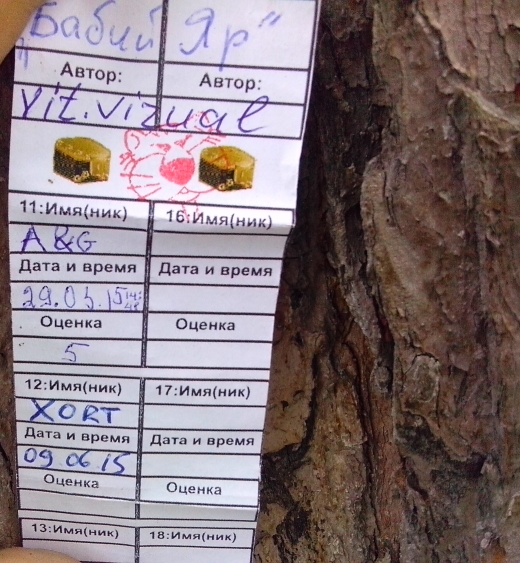 "Бабий Яр"
Автор: Автор:
vit.vizual
11:Имя(ник) 16:Имя(ник)
A&G
Дата и время Дата и время
29.03.15
Оценка Оценка
5
12:Имя(ник) 17:Имя(ник)
XORT
Дата и время Дата и время
09.06.15
Оценка Оценка
13:Имя(ник) 18:Имя(ник)